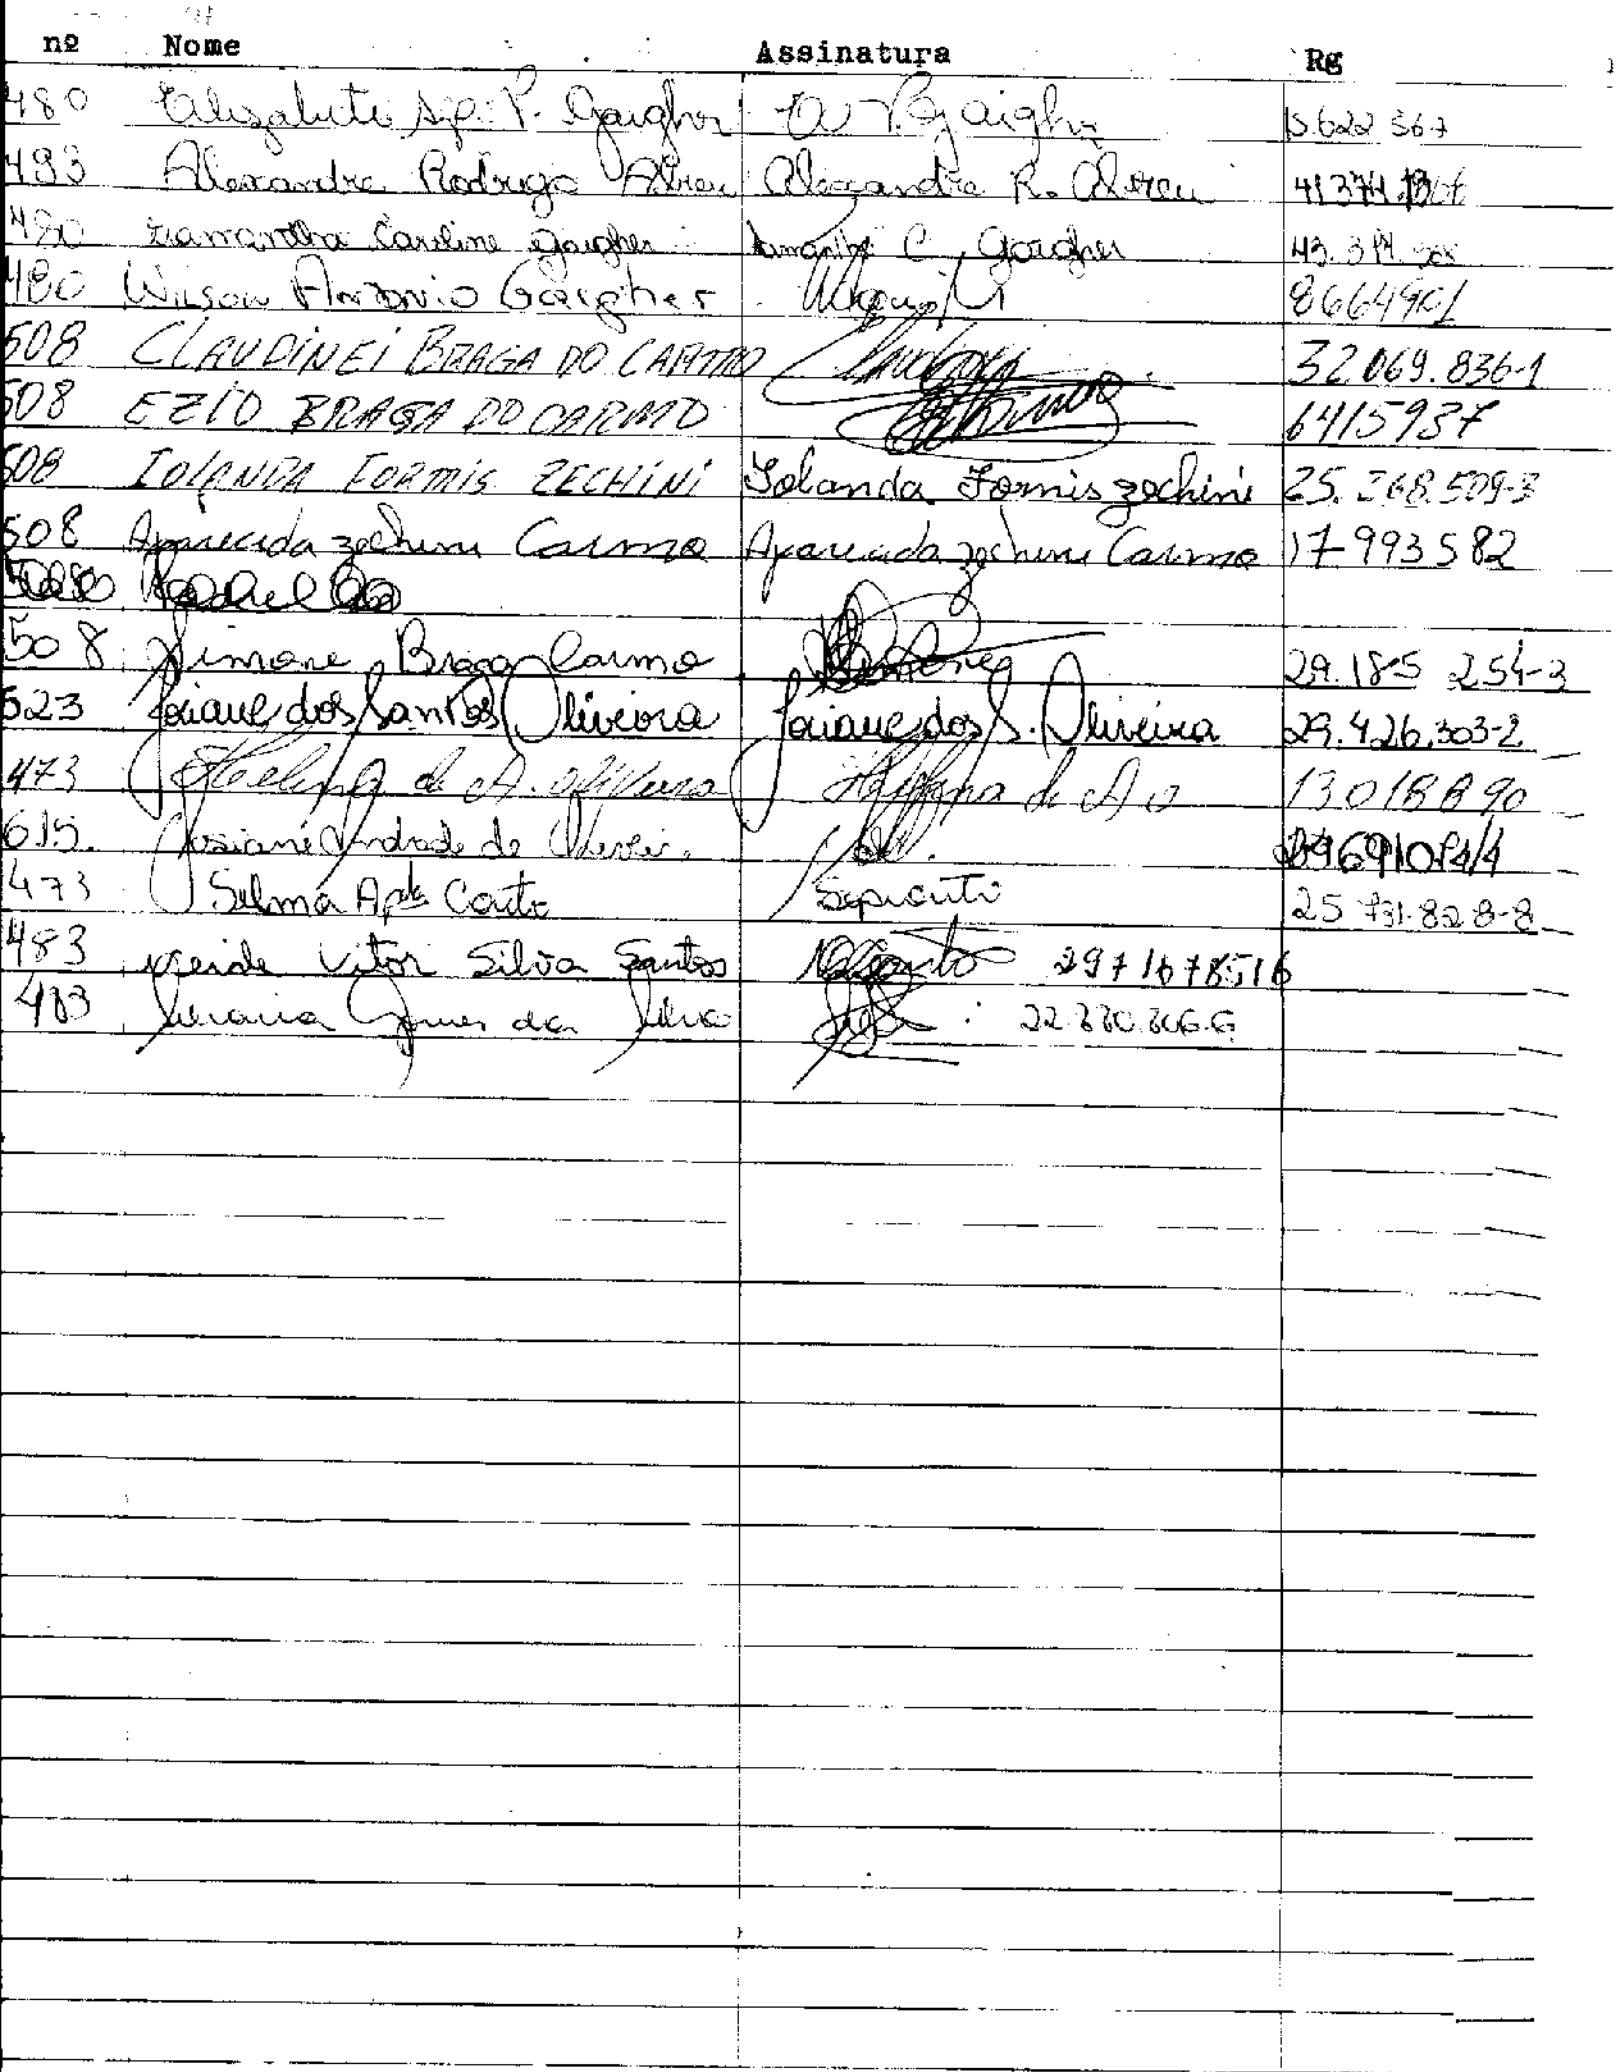 nº Nome Assinatura Rg
480 Elizabete Ap. P. Gaigher P. Gaigher 15.622 367
493 Alexandre Rodrigo Abreu Alexandre R. Abreu 41374
480 Samantha Caroline Gaigher Samantha C. Gaigher 43.314.
480 Wilson Antonio Gaigher 8664901
508 CLAUDINEI BRAGA DO CARMO 32.069.836-1
508 EZIO BRAGA DO CARMO 6415937
508 IOLANDA FORMIS ZECHINI Iolanda Formis zechini 25.268.509-3
508 Aparecida zechini Carmo Aparecida zechini Carmo 17-993582
508 Simone Braga Carmo 29.185 254-3
523 Josiane dos Santos Oliveira Josiane dos S. Oliveira 29.426.303-2
473 de A. Oliveira de A O
615. Josiane Andrade de
473 Selma Apda Couto 25 731.828-8
483 Neide Vitor Silva Santos 2971678516
483 Gomes da Silva